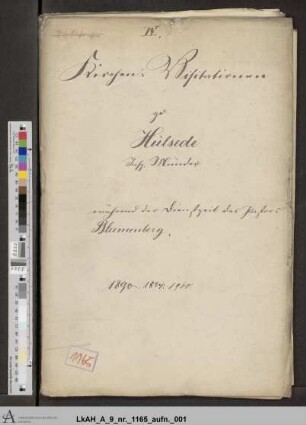 IV.
Kirchen-Visitationen
zu
Hülsede
Insp. Münder
während der Dienstzeit des Pastors
Blumenberg.
1890. 1894. 1900
1165
LkAH_A_9_nr._1165_aufn._001